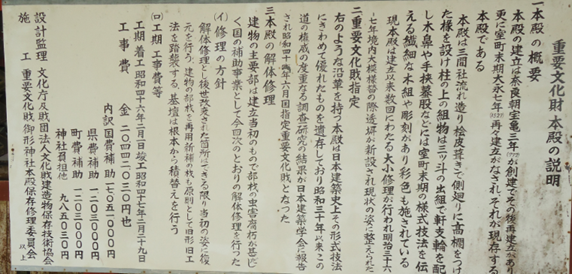 重要文化財本殿の説明
一本殿の概要
本殿の建立は奈良朝宝亀三年が創建でその後再建立があり
更に室町末期大永七年再々建立がなされ、それが現存する
本殿である
本殿は三間社流れ造り桧皮葺きで側廻りに高欄をつけ
た椽を設け柱の上の組物は三ッ斗の出組で軒支輪を配
し木鼻や手挾蟇股などには室町末期の様式技法を伝
える繊細な木組や彫刻があり彩色も施されている
現本殿は建立以来数回にわたる大小修理が行われ明治三十六
七年境内大模様替の際透塀が新設され現状の姿に整えられた
二重要文化財指定
右のような沿革を持つ本殿は日本建築史上その形式技法
にきわめて優れたものを遺存しており昭和三十年以来この
道の権威の度重なる調査研究の結果が日本建築学会に報告
され昭和四十年六月国指定重要文化財となった
三本殿の解体修理
建物の主要部は建立当初のもので部材の虫害腐朽が甚し
く国の補助事業として今回次のとおりの解体修理を行った
(イ)修理の方針
解体修理とし後世改変された箇所はできる限り当初の姿に復
元を行う、建物の部材を再用新補の材も原則として旧形旧工
法を踏襲する、基壇は根本から積替えを行う
(ロ)工期工事費等
工期着工昭和四十六年二月一日竣工昭和四十七年三月三十九日
工事費 金二〇四四二〇三〇円也
内訳国費補助一七〇五一〇〇〇円
県費補助一二〇三〇〇〇円
町費補助一二〇三〇〇〇円
神社負担他九八五〇三〇円
設計監理 文化庁及財団法人文化財建造物保存技術協会
施工 重要文化財御形神社本殿保存修理委員会
以上